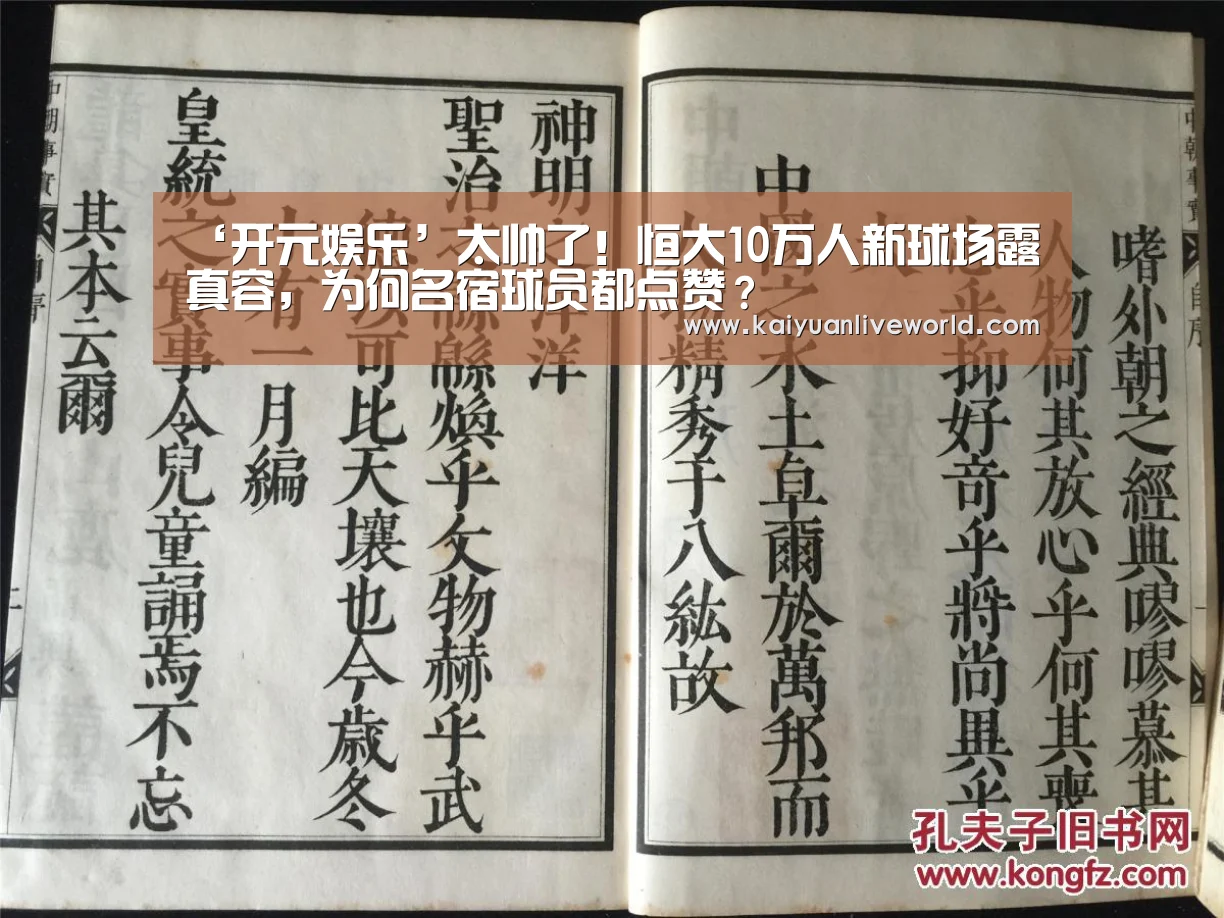 嗜外朝之經典嘐嘐慕其
人物何其放心乎何其喪
志乎抑好奇乎將尚異乎
夫
中國之水土卓爾於萬邦而
人物精秀于八紘故
神明之洋洋
聖治之緜緜煥乎文物赫乎武
德以可比天壤也今歳冬
十有一月編
皇統之實事令兒童誦焉不忘
其本云爾
中朝事實
自序
一
中朝事實
自序
二
‘开元娱乐’太帅了！恒大10万人新球场露
真容，为何名宿球员都点赞？
www.kaiyuanliveworld.com
孔夫子旧书网
www.kongfz.com